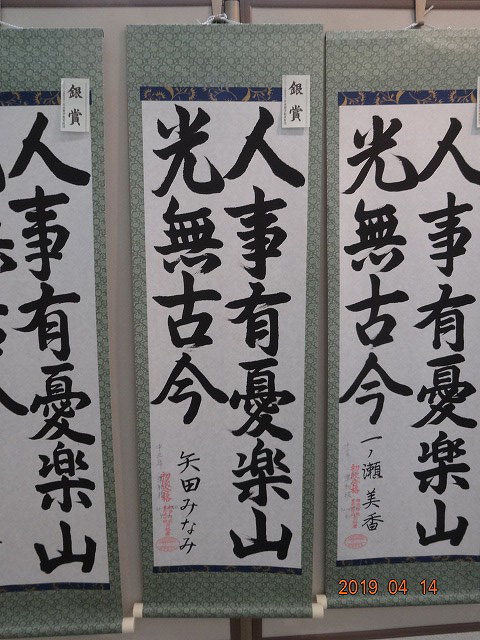 銀賞
人事有憂楽山
銀賞
人事有憂楽山
光無古今
矢田みなみ
人事有憂楽山
光無古今
一ノ瀬美香
2019 04 14